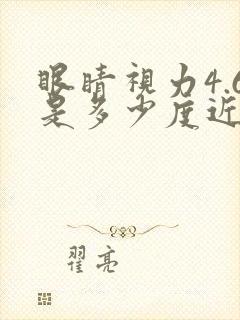 眼睛视力4.6
是多少度近
翟亮